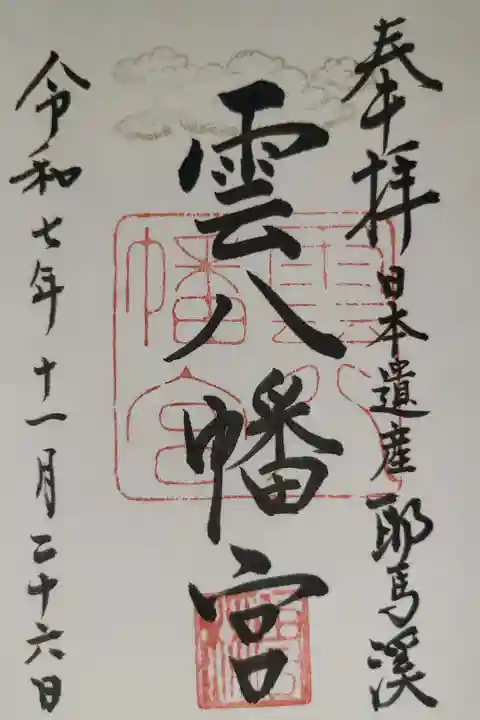 奉拝 日本遺産 耶馬溪
雲八幡宮
令和七年十一月二十六日
雲八幡宮